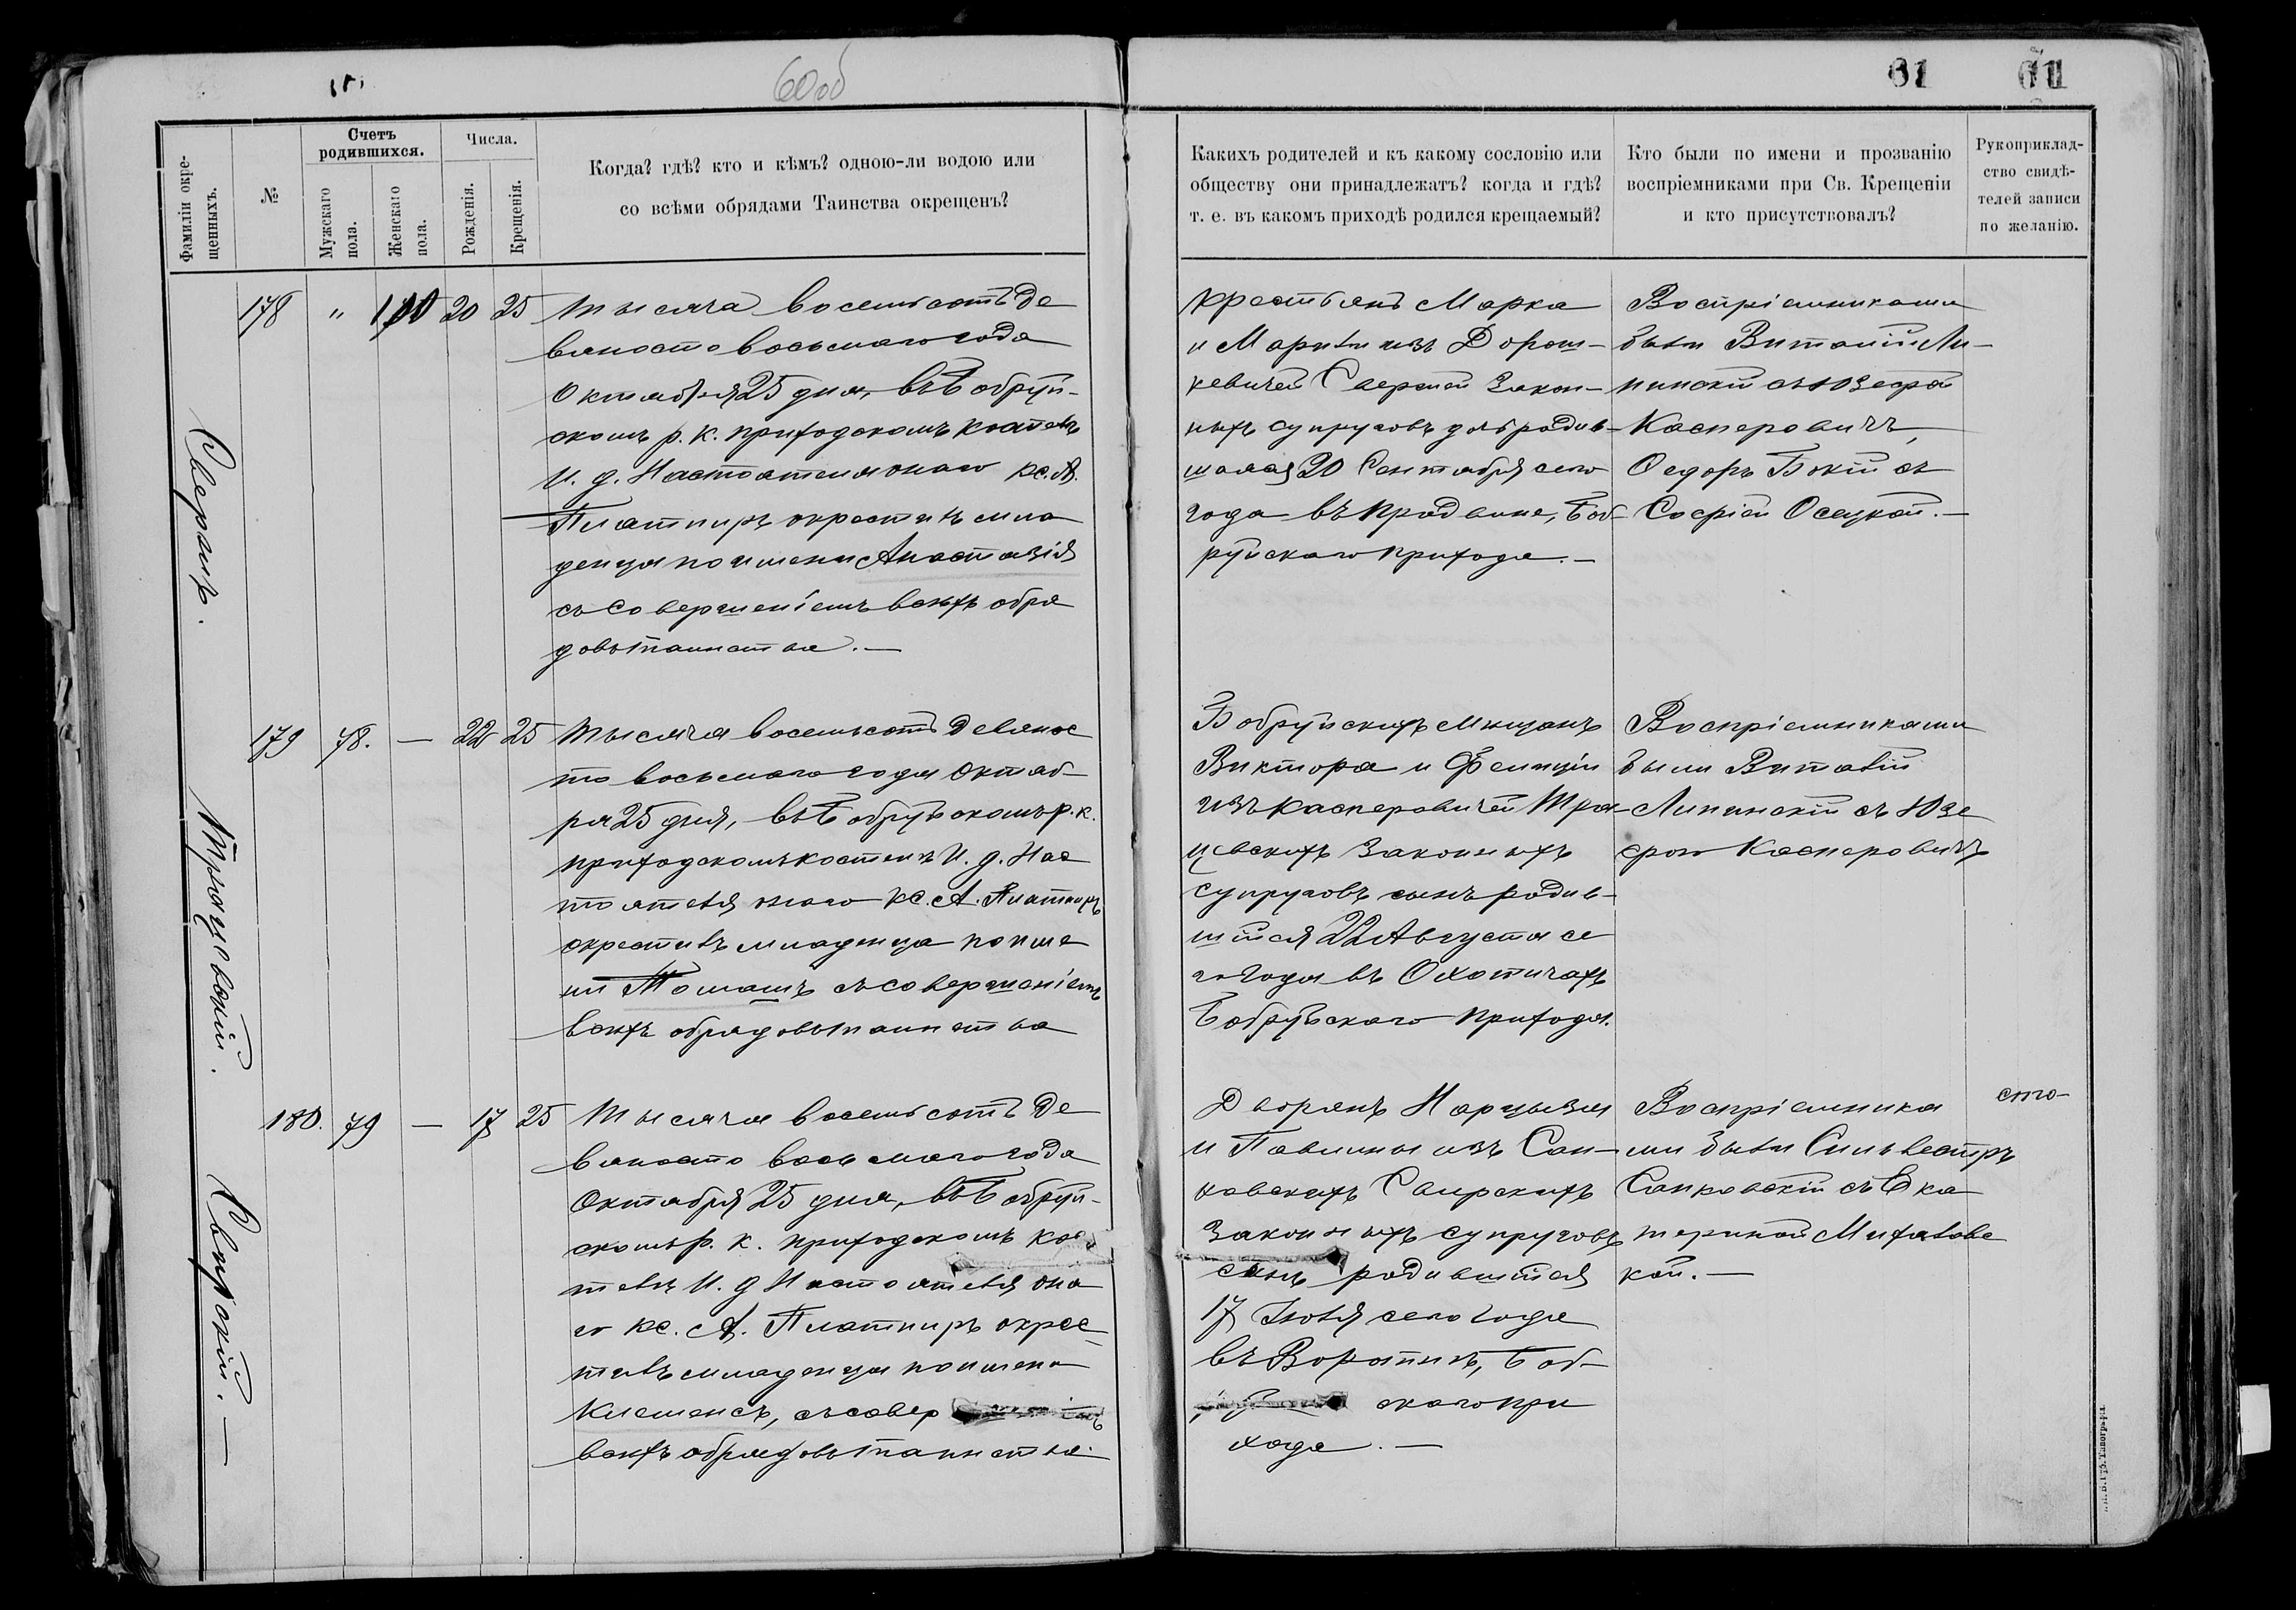 60 об
61 61
Фамиліи окрещенныхъ.
№
Счетъ родившихся.
Мужскаго пола.
Женскаго пола.
Числа.
Рожденія.
Крещенія.
Когда? гдѣ? кто и кѣмъ? одною-ли водою или
со всѣми обрядами Таинства окрещенъ?
Каихъ родителей и къ какому сословію или
обществу они принадлежатъ? когда и гдѣ?
т. е. въ какомъ приходѣ родился крещаемый?
Кто были по имени и прозванію
воспріемниками при Св. Крещеніи
и кто присутствовалъ?
Рукоприклад-
ство свидѣ-
телей записи
по желанію.
178 " 100 20 25
Тысяча восемьсотъ де
вяносто восьмаго года
Октября 25 дня, въ Бобруй-
скомъ р. к. приходскомъ костелѣ
И. д. Настоятеля онаго кс. А.
Платпиръ окрестилъ мла
денца по имени Анастазія
съ совершеніемъ всѣхъ обря
довъ таинства.—
Крестьянъ Марка
и Маріи изъ Дорош-
кевичей Сверщей закон-
ныхъ супруговъ дочь родив-
шаяся 20 Сентября сего
года въ Продвине, Боб-
руйскаго прихода.—
Воспріемниками
были Виталій Ли-
пинскій съ Юзефой
Касперовичъ,
Федоръ Бокій съ
Софіей Осецкой.—
179 78. — 22 25
Тысяча восемьсотъ девянос
то восьмаго года Октяб-
ря 25 дня, въ Бобруйскомъ р. к.
приходскомъ костелѣ И. д. Нас
тоятеля онаго кс. А. Платпиръ
окрестилъ младенца по име
ни Томашъ съ совершеніемъ
всѣхъ обрядовъ таинства
Бобруйскихъ мѣщанъ
Виктора и Фелиціи
изъ Касперовичей Тря-
цевскихъ законныхъ
супруговъ сынъ родив-
шійся 22 Августа се
го года въ Охотичахъ
Бобруйскаго прихода.
Воспріемниками
были Виталій
Липинскій съ Юзе
фою Касперовичъ
180. 79 — 17 25
Тысяча восемьсотъ де
вяносто восьмаго года
Октября 25 дня, въ Бобруй-
скомъ р. к. приходскомъ кос
телѣ И. д Настоятеля она
го кс. А. Платпиръ окрес
тилъ младенца по имени
Клеменсъ, съ совершеніемъ
всѣхъ обрядовъ таинства.
Дворянъ Нарцыза
и Павлины изъ Сан-
ковскихъ Свирскихъ
законныхъ супруговъ
сынъ родившійся
17 Іюля сего года
въ Воротинѣ, Боб-
скаго при
хода.—
Воспріемника
ми были Сильвестръ
Санковскій съ Ека
териной Михаловс
кой.—
Сверщъ.
Свирскій.—